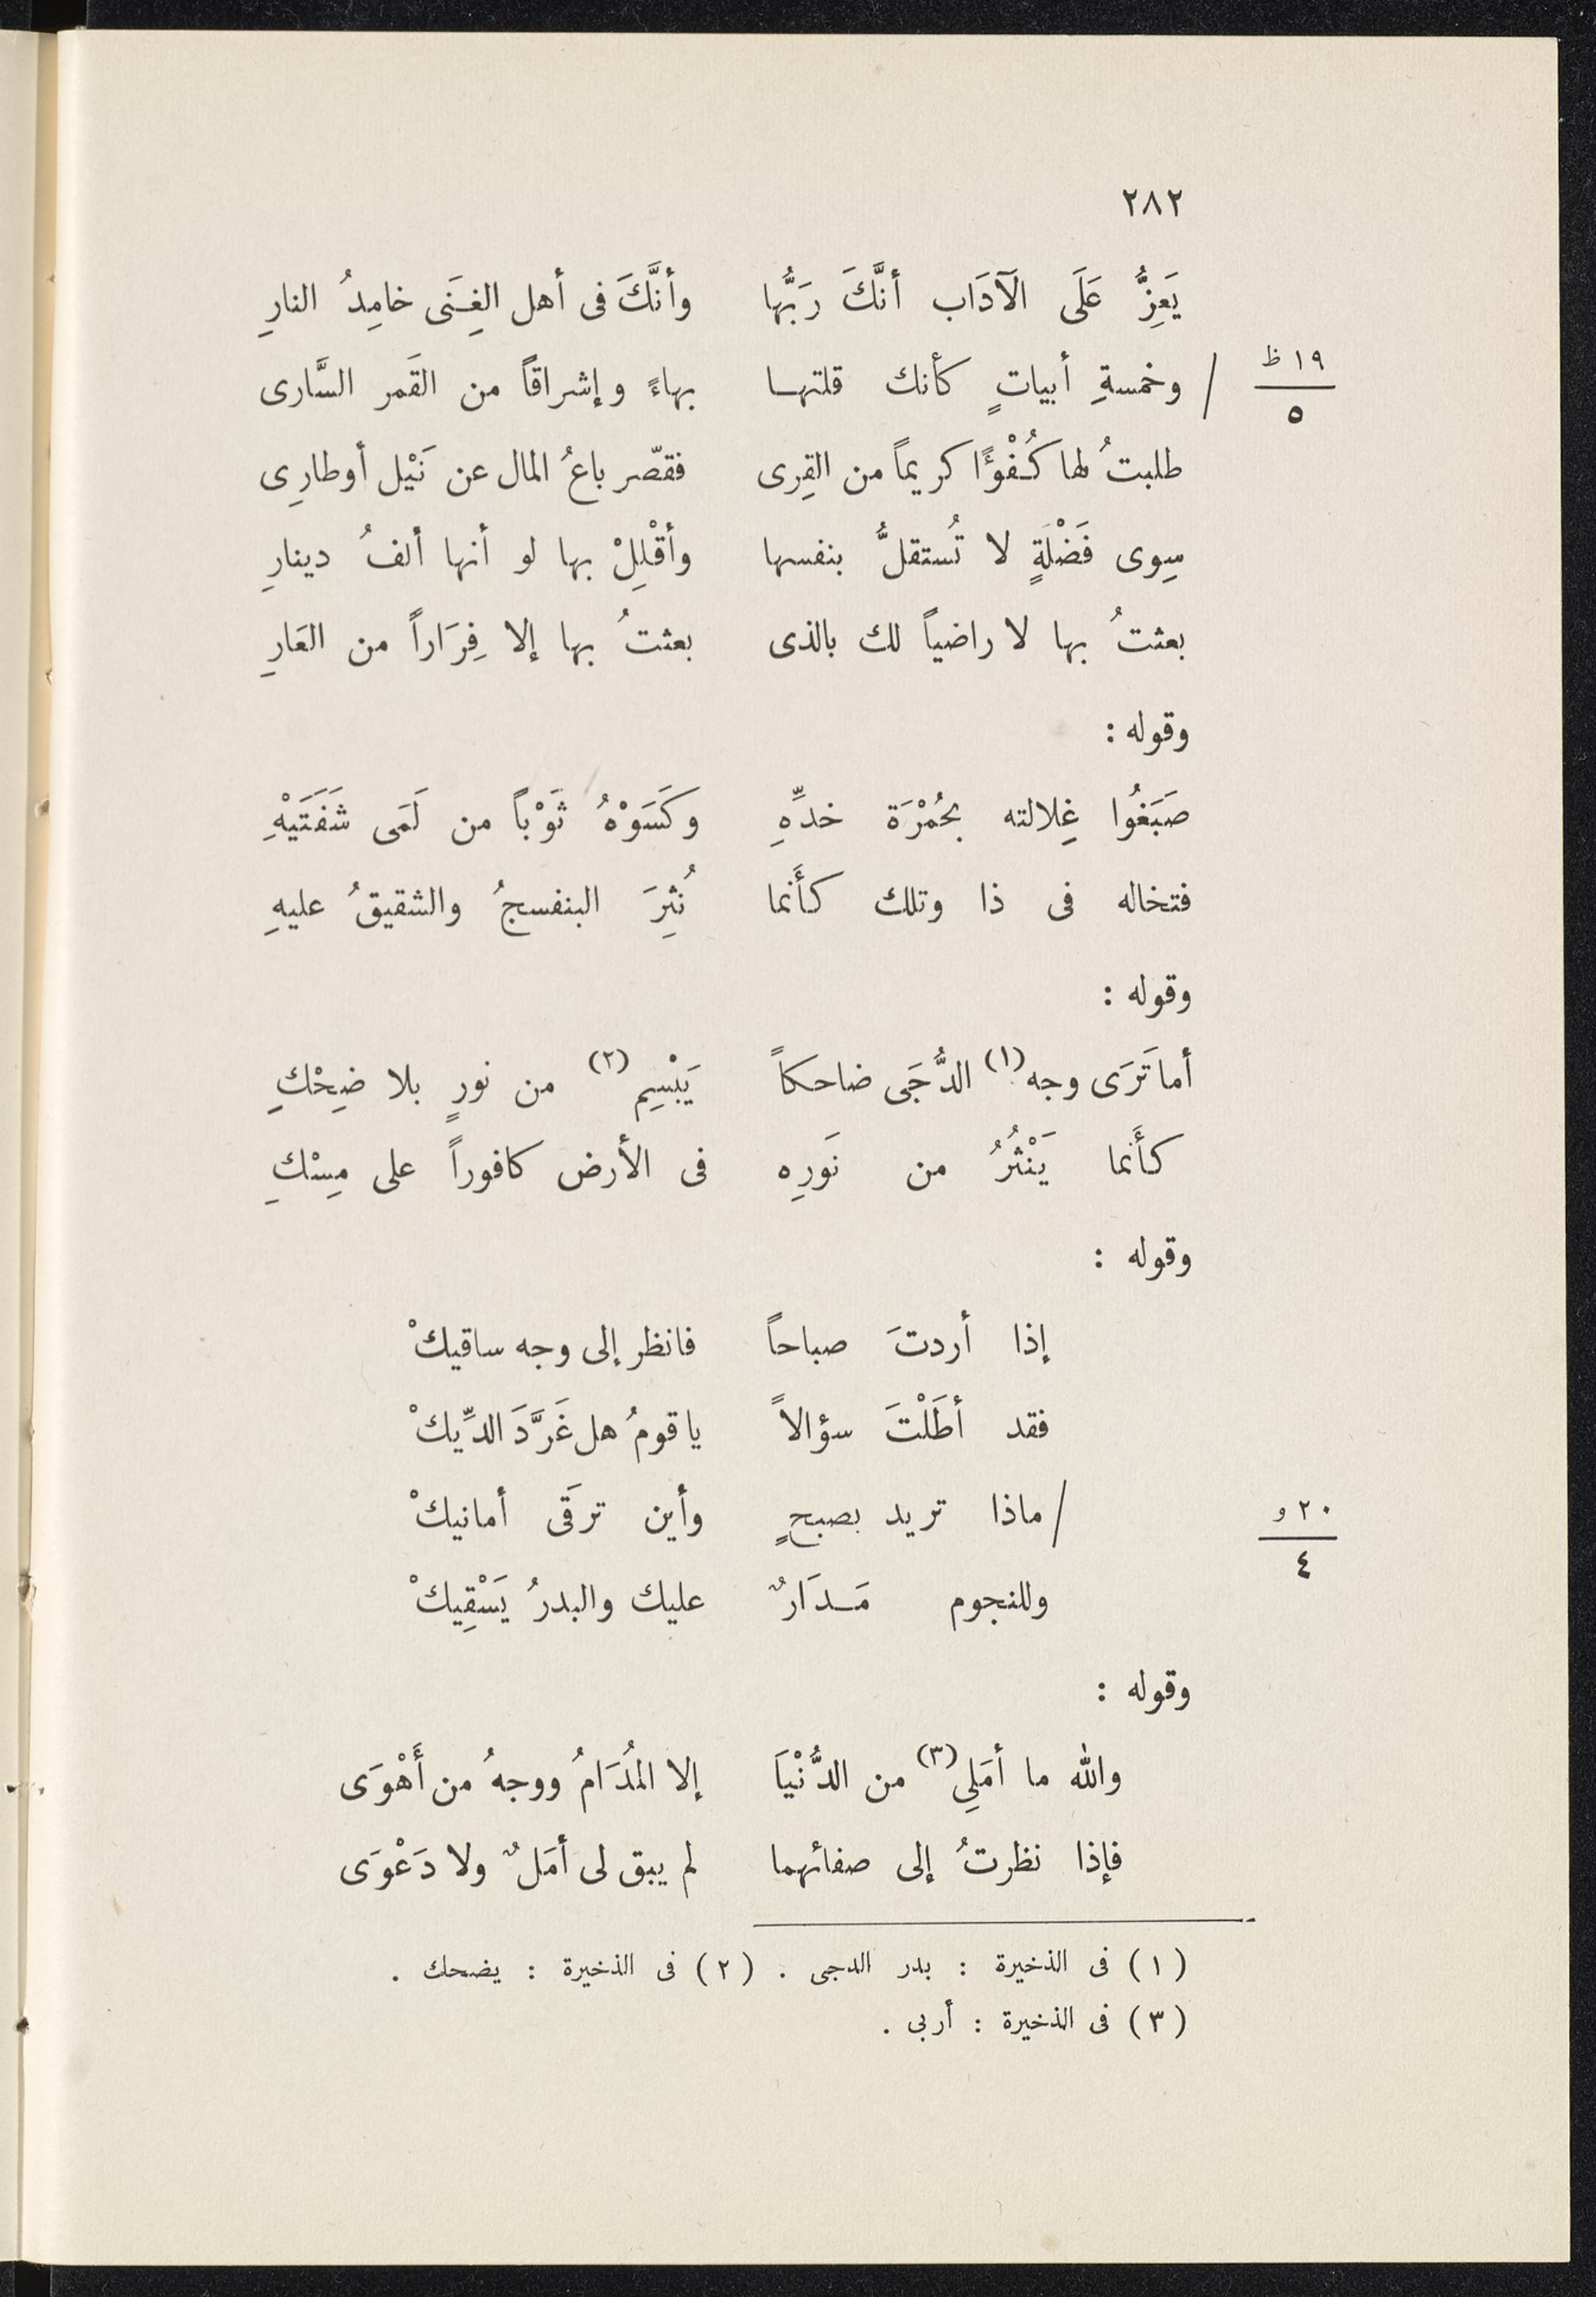 ٢٨٢
يَعِزُّ عَلَى الَآدَاب أنَّكَ رَبُّها وأنَّكَ فى أهل الغِـنَى خامِدُ النارِ
١٩ ظ / ٥
/ وخمسةِ أبياتٍ كأنك قلتهـا بهاءً وإشراقاً من القَمر السَّارى
طلبتُ لها كُـفْوًا كريماً من القِرى فقصّر باعُ المال عن نَيْل أوطارِى
سِوى فَضْلَةٍ لا تُستقلُّ بنفسها وأقْلِلْ بها لو أنها ألفُ دينارِ
بعثتُ بها لا راضياً لك بالذى بعثتُ بها إلا فِرَاراً من العَارِ
وقوله :
صَبَغُوا غِلالته بحُمْرَة خدِّهِ وكَسَوْهُ ثَوْباً من لَمَى شَفَتَيْهِ
فتخاله فى ذا وتلك كأَنما نُثِرَ البنفسجُ والشقيقُ عليهِ
وقوله :
أما تَرَى وجه (١) الدُّجَى ضاحكاً يَبْسِم (٢) من نورٍ بلا ضِحْكِ
كأَنما يَنْثُرُ من نَورِه فى الأرض كافوراً على مِسْكِ
وقوله :
إذا أردتَ صباحاً فانظر إلى وجه ساقيكْ
فقد أطَلْتَ سؤالاً يا قومُ هل غَرَّدَ الدِّيكْ
٢٠ و / ٤
/ ماذا تريد بصبحٍ وأين ترقَى أمانيكْ
وللنجوم مَـدَارٌ عليك والبدرُ يَسْقِيكْ
وقوله :
والله ما أمَلِي (٣) من الدُّنْيَا إلا المُدَامُ ووجهُ من أَهْوَى
فإذا نظرتُ إلى صفائهما لم يبق لى أمَلٌ ولا دَعْوَى
(١) فى الذخيرة : بدر الدجى . (٢) فى الذخيرة : يضحك .
(٣) فى الذخيرة : أربى .